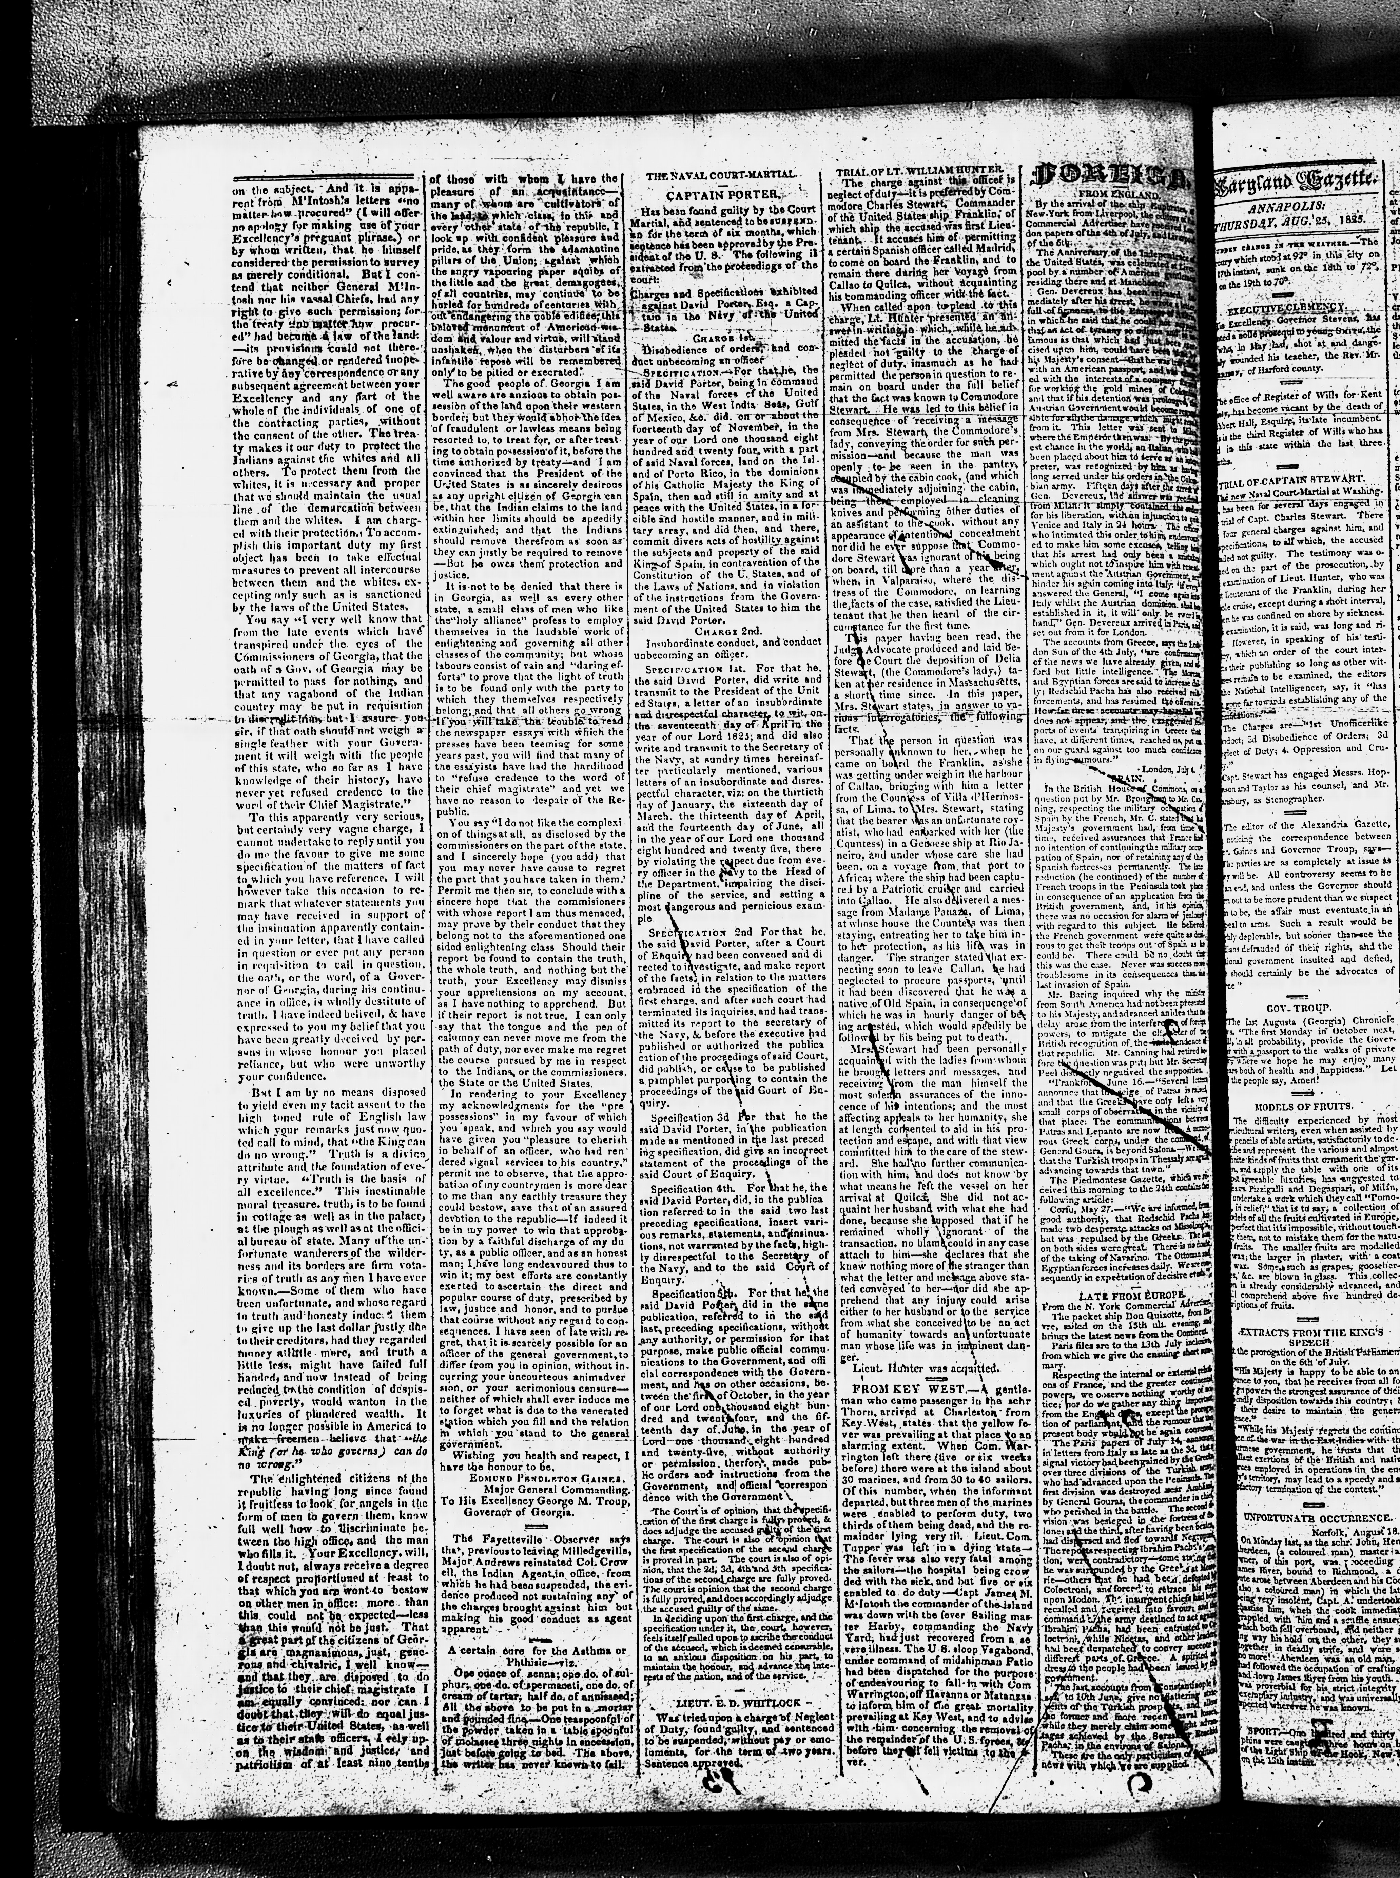 on the subject. And it is appa-
rent from M'Intosh's letters "no
matter how procured" (I will offer
no apology for making use of your
Excellency's pregnant phrase,) or
by whom written, that he himself
considered the permission to survey
as merely conditional. But I con-
tend that neither General M'In-
tosh nor his vassal Chiefs, had any
right to give such permission; for
the treaty "no matter how procur-
ed" had become a law of the land:
—its provisions could not there-
fore be changed or rendered inope-
rative by any correspondence or any
subsequent agreement between your
Excellency and any part of the
whole of the individuals of one of
the contracting parties, without
the consent of the other. The trea-
ty makes it our duty to protect the
Indians against the whites and all
others. To protect them from the
whites, it is necessary and proper
that we should maintain the usual
line of the demarcation between
them and the whites. I am charg-
ed with their protection. To accom-
plish this important duty my first
object has been to take effectual
measures to prevent all intercourse
between them and the whites, ex-
cepting only such as is sanctioned
by the laws of the United States.
You say "I very well know that
from the late events which have
transpired under the eyes of the
Commissioners of Georgia, that the
oath of a Gov. of Georgia may be
permitted to pass for nothing, and
that any vagabond of the Indian
country may be put in requisition
to discredit him, but I assure you
sir, if that oath should not weigh a
single feather with your Govern-
ment it will weigh with the people
of this state, who so far as I have
knowledge of their history, have
never yet refused credence to the
word of their Chief Magistrate."
To this apparently very serious,
but certainly very vague charge, I
cannot undertake to reply until you
do me the favour to give me some
specification of the matters of fact
to which you have reference. I will
however take this occasion to re-
mark that whatever statements you
may have received in support of
the insinuation apparently contain-
ed in your letter, that I have called
in question or ever put any person
in requisition to call in question,
the oath, or the word, of a Gover-
nor of Georgia, during his continu-
ance in office, is wholly destitute of
truth. I have indeed belived, & have
expressed to you my belief that you
have been greatly deceived by per-
sons in whose honour you placed
reliance, but who were unworthy
your confidence.
But I am by no means disposed
to yield even my tacit assent to the
high toned rule of English law
which your remarks just now quo-
ted call to mind, that "the King can
do no wrong." Truth is a divine
attribute and the foundation of eve-
ry virtue. "Truth is the basis of
all excellence." This inestimable
moral treasure, truth, is to be found
in cottage as well as in the palace,
at the plough as well as at the offici-
al bureau of state. Many of the un-
fortunate wanderers of the wilder-
ness and its borders are firm vota-
ries of truth as any men I have ever
known.—Some of them who have
been unfortunate, and whose regard
to truth and honesty induced them
to give up the last dollar justly due
to their creditors, had they regarded
money a little more, and truth a
little less, might have failed full
handed, and now instead of being
reduced to the condition of despis-
ed poverty, would wanton in the
luxuries of plundered wealth. It
is no longer possible in America to
make freemen believe that "the
King (or he who governs) can do
no wrong."
The enlightened citizens of the
republic having long since found
it fruitless to look for angels in the
form of men to govern them, know
full well how to discriminate be-
tween the high office, and the man
who fills it. Your Excellency will,
I doubt not, always receive a degree
of respect proportioned at least to
that which you are wont to bestow
on other men in office: more than
this could not be expected—less
than this would not be just. That
a great part of the citizens of Geor-
gia are magnanimous, just, gene-
rous and chivalric, I well know—
and that they are disposed to do
justice to their chief magistrate I
am equally convinced: nor can I
doubt that they will do equal jus-
tice to their United States, as well
as to their state officers, I rely up-
on the wisdom and justice, and
patriotism of at least nine tenths
of those with whom I have the
pleasure of an acquaintance—
many of whom are cultivators of
the land, to which class, in this and
every other state of the republic, I
look up with confident pleasure and
pride, as they form the adamantine
pillars of the Union; against which
the angry vapouring paper squibs of
the little and the great demagogues,
of all countries, may continue to be
hurled for hundreds of centuries with-
out endangering the noble edifice; this
beloved monument of American wis-
dom and valour and virtue, will stand
unshaken, when the disturbers of its
infantile repose will be remembered
only to be pitied or execrated.
The good people of Georgia I am
well aware are anxious to obtain pos-
session of the land upon their western
border; but they would abhor the idea
of fraudulent or lawless means being
resorted to, to treat for, or after treat-
ing to obtain possession of it, before the
time authorized by treaty—and I am
convinced that the President of the
United States is as sincerely desirous
as any upright citizen of Georgia can
be, that the Indian claims to the land
within her limits should be speedily
extinguished; and that the Indians
should remove therefrom as soon as
they can justly be required to remove
—But he owes them protection and
justice.
It is not to be denied that there is
in Georgia, as well as every other
state, a small class of men who like
the "holy alliance" profess to employ
themselves in the laudable work of
enlightening and governing all other
classes of the community; but whose
labours consist of vain and "daring ef-
forts" to prove that the light of truth
is to be found only with the party to
which they themselves respectively
belong, and that all others go wrong.
If you will take the trouble to read
the newspaper essays with which the
presses have been teeming for some
years past, you will find that many of
the essayists have had the hardihood
to "refuse credence to the word of
their chief magistrate" and yet we
have no reason to despair of the Re-
public.
You say "I do not like the complexi
on of things at all, as disclosed by the
commissioners on the part of the state,
and I sincerely hope (you add) that
you may never have cause to regret
the part that you have taken in them."
Permit me then sir, to conclude with a
sincere hope that the commisioners
with whose report I am thus menaced,
may prove by their conduct that they
belong not to the aforementioned one
sided enlightening class Should their
report be found to contain the truth,
the whole truth, and nothing but the
truth, your Excellency may dismiss
your apprehensions on my account,
as I have nothing to apprehend. But
if their report is not true, I can only
say that the tongue and the pen of
calumny can never move me from the
path of duty, nor ever make me regret
the course pursued by me in respect
to the Indians, or the commissioners,
the State or the United States.
In rendering to your Excellency
my acknowledgments for the "pre
possessions" in my favour of which
you speak, and which you say would
have given you "pleasure to cherish
in behalf of an officer, who had ren
dered signal services to his country,"
permit me to observe, that the appro-
bation of my countrymen is more dear
to me than any earthly treasure they
could bestow, save that of an assured
devotion to the republic—If indeed it
be in my power to win that approba-
tion by a faithful discharge of my du
ty, as a public officer, and as an honest
man; I have long endeavoured thus to
win it; my best efforts are constantly
exerted to ascertain the direct and
popular course of duty, prescribed by
law, justice and honor, and to pursue
that course without any regard to con-
sequences. I have seen of late with re-
gret, that it is scarcely possible for an
officer of the general government, to
differ from you in opinion, without in-
curring your uncourteous animadver
sion, or your acrimonious censure—
neither of which shall ever induce me
to forget what is due to the venerated
station which you fill and the relation
in which you stand to the general
government.
Wishing you health and respect, I
have the honour to be,
EDMUND PENDLETON GAINES,
Major General Commanding.
To His Excellency George M. Troup,
Governor of Georgia.
The Fayetteville Observer says
that, previous to leaving Milledgeville,
Major Andrews reinstated Col. Crow
ell, the Indian Agent, in office, from
which he had been suspended, the evi-
dence produced not sustaining any of
the charges brought against him but
making his good conduct as agent
apparent.
A certain cure for the Asthma or
Phthisic—viz.
One ounce of senna; one do. of sul-
phur; one do. of spermaceti, one do. of
cream of tartar, half do. of annisseed;
All the above to be put in a mortar
and pounded fine—One teaspoonful of
the powder, taken in a table spoonful
of molasses three nights in succession,
just before going to bed. The above,
the writer has never known to fail.
THE NAVAL COURT-MARTIAL
CAPTAIN PORTER,
Has been found guilty by the Court
Martial, and sentenced to be suspend-
ed for the term of six months, which
sentence has been approved by the Pre-
sident of the U. S. The following is
extracted from the proceedings of the
court:
Charges and Specifications exhibited
against David Porter, Esq. a Cap-
tain in the Navy of the United
States.
CHARGE 1st.
Disobedience of orders, and con-
duct unbecoming an officer
SPECIFICATION.—For that he, the
said David Porter, being in command
of the Naval forces of the United
States, in the West India Seas, Gulf
of Mexico, &c. did, on or about the
fourteenth day of November, in the
year of our Lord one thousand eight
hundred and twenty four, with a part
of said Naval forces, land on the Isl-
and of Porto Rico, in the dominions
of his Catholic Majesty the King of
Spain, then and still in amity and at
peace with the United States, in a for-
cible and hostile manner, and in mili-
tary array, and did then, and there,
commit divers acts of hostility against
the subjects and property of the said
King of Spain, in contravention of the
Constitution of the U. States, and of
the Laws of Nations, and in violation
of the instructions from the Govern-
ment of the United States to him the
said David Porter.
CHARGE 2nd.
Insubordinate conduct, and conduct
unbecoming an officer.
SPECIFICATION 1st. For that he,
the said David Porter, did write and
transmit to the President of the Unit
ed States, a letter of an insubordinate
and disrespectful character, to wit, on
the seventeenth day of April in the
year of our Lord 1825; and did also
write and transmit to the Secretary of
the Navy, at sundry times hereinaf-
ter particularly mentioned, various
letters of an insubordinate and disres-
pectful character, viz: on the thirtieth
day of January, the sixteenth day of
March, the thirteenth day of April,
and the fourteenth day of June, all
in the year of our Lord one thousand
eight hundred and twenty five, there
by violating the respect due from eve-
ry officer in the Navy to the Head of
the Department, impairing the disci-
pline of the service, and setting a
most dangerous and pernicious exam-
ple
SPECIFICATION 2nd For that he,
the said David Porter, after a Court
of Enquiry had been convened and di
rected to investigate, and make report
of the facts, in relation to the matters
embraced in the specification of the
first charge, and after such court had
terminated its inquiries, and had trans-
mitted its report to the secretary of
the Navy, & before the executive had
published or authorized the publica
cation of the proceedings of said Court,
did publish, or cause to be published
a pamphlet purporting to contain the
proceedings of the said Court of En-
quiry.
Specification 3d For that he the
said David Porter, in the publication
made as mentioned in the last preced
ing specification, did give an incorrect
statement of the proceedings of the
said Court of Enquiry.
Specification 4th. For that he, the
said David Porter, did, in the publica
tion referred to in the said two last
preceding specifications, insert vari-
ous remarks, statements, and insinua-
tions, not warranted by the facts, high-
ly disrespectful to the Secretary of
the Navy, and to the said Court of
Enquiry.
Specification 5th. For that he the
said David Porter, did in the same
publication, referred to in the said
last preceding specifications, without
any authority, or permission for that
purpose, make public official commu-
nications to the Government, and offi
cial correspondence with the Govern-
ment, and has on other occasions, be-
tween the first of October, in the year
of our Lord one thousand eight hun-
dred and twenty four, and the fif-
teenth day of June, in the year of
Lord one thousand eight hundred
and twenty-five, without authority
or permission, therefor, made pub-
lic orders and instructions from the
Government, and official correspon
dence with the Government
The Court is of opinion, that the specifi-
cation of the first charge is fully proved, &
does adjudge the accused guilty of the first
charge. The court is also of opinion that
the first specification of the second charge
is proved in part. The court is also of opi-
nion, that the 2d, 3d, 4th and 5th specifica-
tions of the second charge are fully proved.
The court is opinion that the second charge
is fully proved, and does accordingly adjudge
the accused guilty of the same.
In deciding upon the first charge, and the
specification under it, the court, however,
feels itself called upon to ascribe the conduct
of the accused, which is deemed censurable,
to an anxious disposition, on his part, to
maintain the honour, and advance the inte-
rests of the nation, and of the service.
LIEUT. E. D. WHITLOCK –
Was tried upon a charge of Neglect
of Duty, found guilty, and sentenced
to be suspended, without pay or emo-
luments, for the term of two years.
Sentence approved.
TRIAL OF LT. WILLIAM HUNTER.
The charge against this officer is
neglect of duty—it is preferred by Com-
modore Charles Stewart, Commander
of the United States ship Franklin, of
which ship the accused was first Lieu-
tenant. It accuses him of permitting
a certain Spanish officer called Madrid,
to come on board the Franklin, and to
remain there during her voyage from
Callao to Quilca, without acquainting
his commanding officer with the fact.
When called upon to plead to this
charge, Lt. Hunter presented an an-
swer in writing in which, while he ad-
mitted the facts in the accusation, he
pleaded not guilty to the charge of
neglect of duty, inasmuch as he had
permitted the person in question to re-
main on board under the full belief
that the fact was known to Commodore
Stewart. He was led to this belief in
consequence of receiving a message
from Mrs. Stewart, the Commodore's
lady, conveying the order for such per-
mission—and because the man was
openly to be seen in the pantry,
occupied by the cabin cook, (and which
was immediately adjoining the cabin,
being there employed in cleaning
knives and performing other duties of
an assistant to the cook, without any
appearance of intentional concealment
nor did he ever suppose that Commo-
dore Stewart was ignorant of his being
on board, till more than a year after,
when, in Valparaiso, where the dis-
tress of the Commodore, on learning
the facts of the case, satisfied the Lieu-
tenant that he then heard of the cir-
cumstance for the first time.
This paper having been read, the
Judge Advocate produced and laid be-
fore the Court the deposition of Delia
Stewart, (the Commodore's lady,) ta-
ken at her residence in Massachusetts,
a short time since. In this paper,
Mrs. Stewart states, in answer to va-
rious interrogatories, the following
facts.
That the person in question was
personally unknown to her, when he
came on board the Franklin, as she
was getting under weigh in the harbour
of Callao, bringing with him a letter
from the Countess of Villa d'Hermos-
sa, of Lima, to Mrs. Stewart, stating
that the bearer was an unfortunate roy-
alist, who had embarked with her (the
Countess) in a Genoese ship at Rio Ja-
neiro, and under whose care she had
been, on a voyage from that port to
Africa; where the ship had been captu-
red by a Patriotic cruiser and carried
into Callao. He also delivered a mes-
sage from Madame Panaza, of Lima,
at whose house the Countess was then
staying, entreating her to take him in-
to her protection, as his life was in
danger. The stranger stated that ex-
pecting soon to leave Callao, he had
neglected to procure passports, until
it had been discovered that he was a
native of Old Spain, in consequence of
which he was in hourly danger of be-
ing arrested, which would speedily be
followed by his being put to death.
Mrs. Stewart had been personally
acquainted with the ladies from whom
he brought letters and messages, and
receiving from the man himself the
most solemn assurances of the inno-
cence of his intentions; and the most
affecting appeals to her humanity, she
at length consented to aid in his pro-
tection and escape, and with that view
committed him to the care of the stew-
ard. She had no further communica-
tion with him, and does not know by
what means he left the vessel on her
arrival at Quilca. She did not ac-
quaint her husband with what she had
done, because she supposed that if he
remained wholly ignorant of the
transaction, no blame could in any case
attach to him—she declares that she
knew nothing more of the stranger than
what the letter and message above sta-
ted conveyed to her—nor did she ap-
prehend that any injury could arise
either to her husband or to the service
from what she conceived to be an act
of humanity towards an unfortunate
man whose life was in imminent dan-
ger.
Lieut. Hunter was acquitted.
FROM KEY WEST.—A gentle-
man who came passenger in the schr
Thorn, arrived at Charleston from
Key West, states that the yellow fe-
ver was prevailing at that place to an
alarming extent. When Com. War-
rington left there (five or six weeks
before) there were at the island about
30 marines, and from 30 to 40 sailors.
Of this number, when the informant
departed, but three men of the marines
were enabled to perform duty, two
thirds of them being dead, and the re-
mainder lying very ill. Lieut. Com.
Tupper was left in a dying state—
The fever was also very fatal among
the sailors—the hospital being crow
ded with the sick, and but five or six
enabled to do duty—Capt James M.
M'Intosh the commander of the island
was down with the fever Sailing mas-
ter Harby, commanding the Navy
Yard, had just recovered from a se
vere illness. The U. S. sloop Vagabond,
under command of midshipman Fatio
had been dispatched for the purpose
of endeavouring to fall-in with Com
Warrington, off Havanna or Matanzas
to inform him of the great mortality
prevailing at Key West, and to advise
with him concerning the removal of
the remainder of the U. S. forces,
before they fell victims to the fe-
ver.
FOREIGN.
FROM ENGLAND.
By the arrival of the ship
New-York from Liverpool, the editors of the
Commercial Advertiser have received
don papers of the 4th of July, and
of the 6th.
The Anniversary of the Independence
the United States, was celebrated at
pool by a number of American
residing there and at Manchester.
Gen. Devereux has been
mediately after his arrest, he
full of
in which he said that he could
that an act of tyranny so
famous as that which had just been
cised upon him, could have been
his Majesty's consent—that he was
with an American passport, and
ed with the interests of a company
for working the gold mines of
and that if his detention was prolonged
Austrian Government would become
able for all the damage which might result
from it. This letter was sent to Milan,
where the Emperor then was. By the
est chance in the world, an Italian, who
been placed about him to serve as
preter, was recognized by him as having
long served under his orders in the
bian army. Fifteen days after the arrest
Gen. Devereux, the answer was received
from Milan. It simply contained the order
for his liberation, with an injunction to quit
Venice and Italy in 24 hours. The officer
who intimated this order to him, endeavour
ed to make him some excuses, telling him
that his arrest had only been a
which ought not to inspire him with resent
ment against the Austrian Government,
hinder his again coming into Italy;
answered the General, "I come again
Italy whilst the Austrian dominion shall be
established in it, it will only be sword in
hand." Gen. Devereux arrived in Paris, and
set out from it for London.
The accounts from Greece, says the Lon
don Sun of the 4th July, "are confirmatory
of the news we have already given, and af-
ford but little intelligence. The Morea
and Egyptian forces are said to increase dai-
ly; Redschid Pacha has also received rein
forcements, and has resumed the offensive.
How far these accounts may be
does not appear, and the exaggerated
ports of events transpiring in Greece that
have, at different times, reached us, put us
on our guard against too much confidence
in flying rumours."
London, July 4.
SPAIN.
In the British House of Commons, on a
question put by Mr. Brougham to Mr. Can-
ning, respecting the military occupation of
Spain by the French, Mr. C. stated that his
Majesty's government had, from time to
time, received assurances that France had
no intention of continuing the military occu-
pation of Spain, nor of retaining any of the
Spanish fortresses permanently. The last
reduction (he continued) of the number of
French troops in the Peninsula took place
in consequence of an application from the
British government, and, in his opinion,
there was no occasion for alarm or jealousy
with regard to this subject. He believed
the French government were quite as desi-
rous to get their troops out of Spain as he
could be. There could be no doubt that
this was the case. Never was success more
troublesome in its consequences than the
last invasion of Spain.
Mr. Baring inquired why the minister
from South America had not been presented
to his Majesty, and advanced
delay arose from the interference of foreign
powers, to mitigate the
British recognition of the independence of
that republic. Mr. Canning had retired be-
fore the question was put; but Mr. Secretary
Peel distinctly negatived the supposition.
"Frankfort, June 16.—"Several letters
announce that the siege of Patras is raised
and that the Greeks have only left very
small corps of observation in the vicinity of
that place: The communications between
Patras and Lepanto are now
rous Greek corps, under the command of
General Goura, is beyond Salona.—We
that the Turkish troops in Thessaly are
advancing towards that town."
The Piedmontese Gazette, which we re-
ceived this morning to the 24th contains the
following article:
Corfu, May 27.—"We are informed from
good authority, that Redschid Pacha has
made two desperate attacks on Missolonghi,
but was repulsed by the Greeks. The loss
on both sides were great. There is no news
of the taking of Navarino. The Ottoman
Egyptian forces increases daily. We are con-
sequently in expectation of decisive events."
LATE FROM EUROPE.
From the N. York Commercial Advertiser,
The packet ship Don Quixotte, from Ha-
vre, sailed on the 15th ult. evening,
brings the latest news from the Continent.
Paris files are to the 13th July inclusive
from which we give the ensuing short sum-
mary.
Respecting the internal or external relati-
ons of France, and the greater continental
powers, we observe nothing worthy of no-
tice; nor do we gather any thing important
from the English
tion of parliament, and the rumour that the
present body would not be again convened
The Paris papers of July 14, announce
in letters from Italy as late as the 3d, that a
signal victory had been gained by the Greeks
over three divisions of the Turkish army
who had advanced upon the Peninsula. The
first division was destroyed near Ambliani
by General Goura, the commander in chief
who perished in the battle. The second di-
vision was besieged in the fortress of
and the third, after having been
had dispersed and fled toward Negropont
The reports respecting Ibrahim Pacha's situa-
tion, were contradictory—some stating that
he was surrounded by the Greeks at
rin—others that he had been defeated by
Colcotroni, and forced to retrace his steps
upon Modon. The insurgent chiefs had been
recalled and received into favour, and the
command of the army destined to act against
Ibrahim Pacha, had been entrusted to
loctroni, while Nicetas, and other leaders
had been despatched to convey succour to
different parts of Greece. A spirited ad-
dress to the people had been issued by the
government.
The last accounts from Constantinople
to 10th June, give no flattering
of the Turkish prospects
no former and more recent
while they merely claim some
tages achieved by the Seraskier
Pacha, in the environs of Salona.
These are the only particulars of
news with which we are supplied.
Maryland Gazette.
ANNAPOLIS:
THURSDAY, AUG. 25, 1825.
CHANGE IN THE WEATHER.—The
cury which stood at 92° in this city on
17th instant, sunk on the 18th to 72°,
on the 19th to 70°.
EXECUTIVE CLEMENCY.
Excellency Governor Stevens, has
a nolle prosequi to young
who, in May last, shot at and dange-
wounded his teacher, the Rev. Mr.
of Harford county.
The office of Register of Wills for Kent
has become vacant by the death of
Hall, Esquire, its late incumbent
is the third Register of Wills who has
in this state within the last three
TRIAL OF CAPTAIN STEWART.
The new Naval Court-Martial at Washing-
has been for several days engaged in
trial of Capt. Charles Stewart. There
four general charges against him, and
specifications, to all which, the accused
not guilty. The testimony was o-
on the part of the prosecution, by
examination of Lieut. Hunter, who was
Lieutenant of the Franklin, during her
cruise, except during a short interval,
he was confined on shore by sickness.
examination, it is said, was long and ri-
However, in speaking of his testi-
which an order of the court inter-
their publishing so long as other wit-
remain to be examined, the editors
the National Intelligencer, say, it "has
far towards establishing any of the
The Charges are—"1st Unofficerlike
conduct; 2d Disobedience of Orders; 3d
Neglect of Duty; 4. Oppression and Cru-
Capt. Stewart has engaged Messrs. Hop-
and Taylor as his counsel, and Mr.
as Stenographer.
The editor of the Alexandria Gazette,
the correspondence between
Gaines and Governor Troup, says—
The parties are as completely at issue as
will be. All controversy seems to be
and, unless the Governor should
out to be more prudent than we suspect
to be, the affair must eventuate in an
to arms. Such a result would be
deplorable, but sooner than see the
defrauded of their rights, and the
general government insulted and defied,
should certainly be the advocates of
GOV. TROUP.
The last Augusta (Georgia) Chronicle
"The first Monday in October next,
in all probability, provide the Gover-
with a passport to the walks of private
where we hope he may enjoy many
both of health and Happiness." Let
the people say, Amen!
MODELS OF FRUITS.
The difficulty experienced by most
writers, even when assisted by
pencils of able artists, satisfactorily to de-
and represent the various and almost
kinds of fruits that ornament the gar-
and supply the table with one of its
agreeable luxuries, has suggested to
Pizzigalli and Degaspari, of Milan,
undertake a work which they call "Pomo-
in relief," that is to say, a collection of
of all the fruits cultivated in Europe,
perfect that it is impossible, without touch
them, not to mistake them for the natu-
fruits. The smaller fruits are modelled
wax; the larger in plaster, with a coat
wax. Some, such as grapes, gooseber-
&c. are blown in glass. This collec-
is already considerably advanced and
comprehend above five hundred de-
scriptions of fruits.
EXTRACTS FROM THE KING'S
SPEECH
the prorogation of the British Parliament
on the 6th of July.
"His Majesty is happy to be able to an-
to you, that he receives from all fo-
powers the strongest assurance of their
disposition towards this country;
their desire to maintain the general
"While his Majesty regrets the continu-
of the war in the East-Indies with the
government, he trusts that the
exertions of the British and native
employed in operations in the ene-
territory, may lead to a speedy and sa-
termination of the contest."
UNFORTUNATE OCCURRENCE.
Norfolk, August 18.
On Monday last, as the schr. John, Hen
Aberdeen, (a coloured man) master and
owner, of this port, was proceeding up
James River, bound to Richmond, a dis-
arose between Aberdeen and his Cook
a coloured man) in which the latter
being very insolent, Capt. A. undertook to
him, when the cook immediately
with him and a scuffle ensued
which both fell overboard, and neither giv-
way his hold on the other, they sunk
in deadly strife, and were seen
no more! Aberdeen was an old man, and
followed the occupation of crafting up
and down James River from his youth, and
proverbial for his strict integrity and
exemplary industry, and was universally res-
pected wherever he was known.
SPORT.—One hundred and thirty
were caught in three hours on board
of the Light Ship off the Hook, New-York,
on the 12th instant.